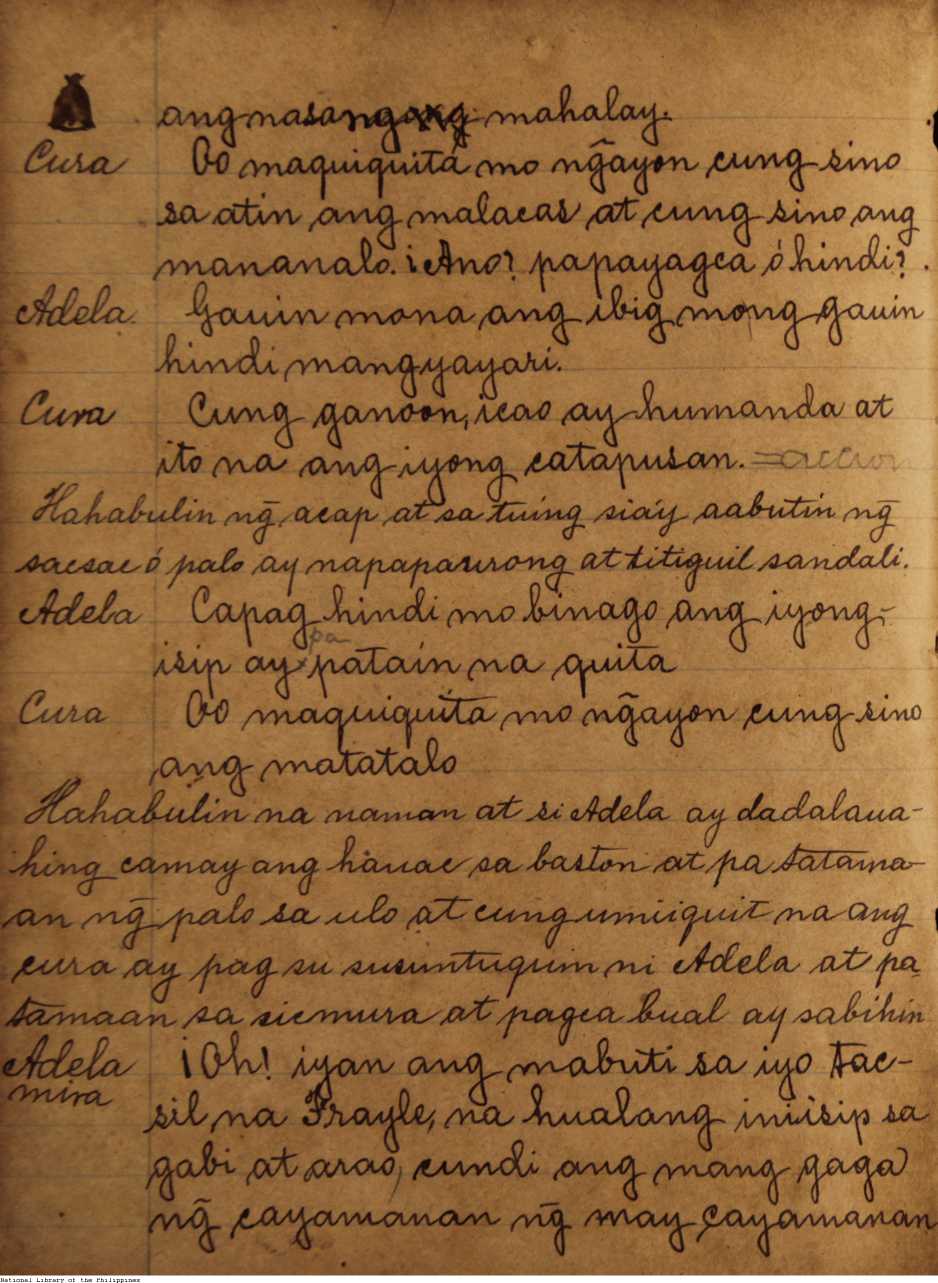 ang nasang mahalay.
Cura Oo maquiquita mo ng̃ayon cung sino
sa atin ang malacas at cung sino ang
mananalo. ¡Ano? papayagca ó hindi?
Adela. Gauin mona ang ibig mong gauin
hindi mangyayari.
Cura Cung ganoon, icao ay humanda at
ito na ang iyong catapusan. =accion
Hahabulin ng̃ acap at sa tuing siáy aabutin ng̃
sacsac ó palo ay napapaurong at titiguil sandali.
Adela Capag hindi mo binago ang iyong
pa
isip ay patain na quita
Cura Oo maquiquita mo ng̃ayon cung sino
ang matatalo
Hahabulin na naman at si Adela ay dadalaua-
hing camay ang hauac sa baston at pa tatama-
an ng̃ palo sa ulo at cung umiiquit na ang
cura ay pag su susuntuquin ni Adela at pa
tamaan sa sicmura at pagca bual ay sabihin
Adela ¡Oh! iyan ang mabuti sa iyo tac-
mira
sil na Frayle, na hualang iniisip sa
gabi at arao, cundi ang mang gaga
ng̃ cayamanan ng̃ may cayamanan
National Library of the Philippines